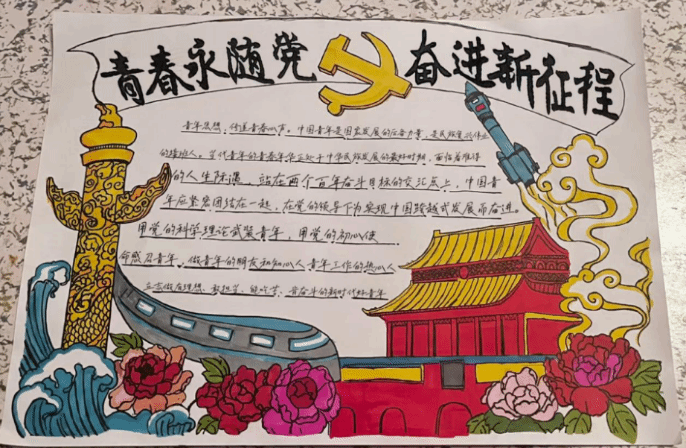 青春永随党 奋进新征程
青年思想，传递青春心声。中国青年是国家发展的后备力量，是民族复兴伟业
的接班人。当代青年的青春年华正处于中华民族发展的最好时期，面临着难得
的人生际遇，站在两个百年奋斗目标的交汇点上，中国青
年应紧密团结在一起，在党的领导下为实现中国跨越式发展而奋进。
用党的科学理论武装青年，用党的初心使
命感召青年，做青年的朋友和知心人青年工作的热心人
立志做有理想、敢担当、能吃苦、肯奋斗的新时代好青年